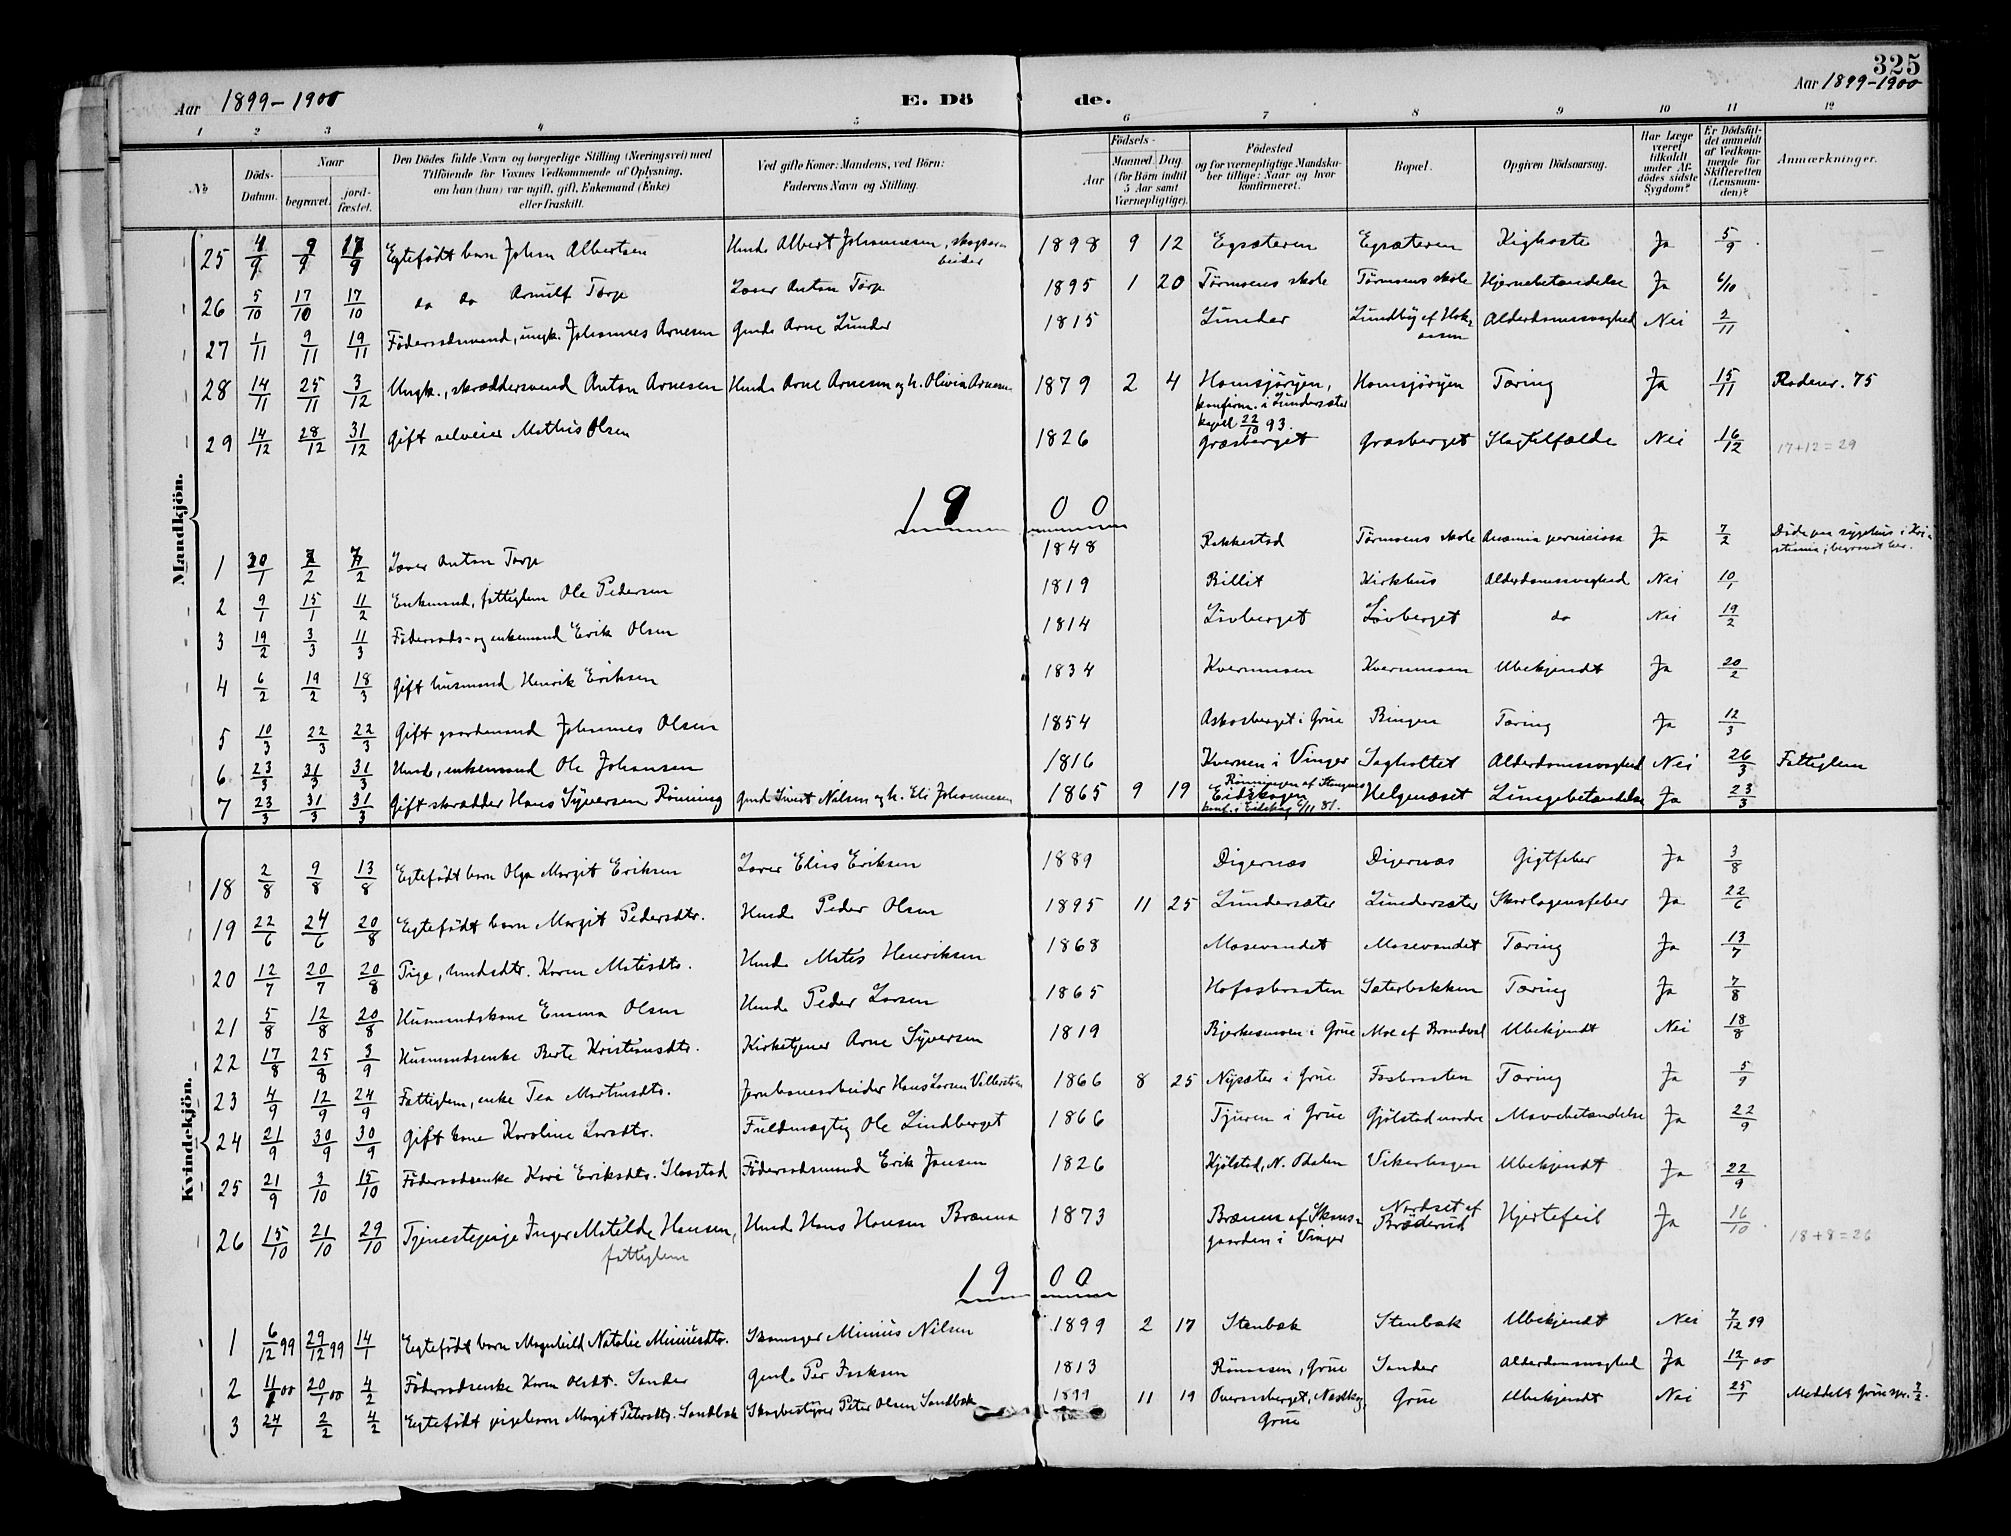 325
Aar 1899-1900 E. Dö de. Aar 1899-1900
1 2 3 4 5 6 7 8 9 10 11 12
№ Döds-Datum. Naar begravet. jordfæstet. Den Dödes fulde Navn og borgerlige Stilling (Næringsvei) med Tilföiende for Voxnes Vedkommende af Oplysning, om han (hun) var ugift, gift, Enkemand (Enke) eller fraskilt. Ved gifte Koner: Mandens, ved Börn: Faderens Navn og Stilling. Födsels- Aar Maaned Dag (for Börn indtil 5 Aar samt Værnepligtige). Födested og for værnepligtige Mandskaber tillige: Naar og hvor konfirmeret. Bopæl. Opgiven Dödsaarsag. Har Læge været tilkaldt under Afdödes sidste Sygdom? Er Dödsfaldet anmeldt af Vedkommende for Skifteretten (Lensmanden)? Anmærkninger.
Mandkjön.
25 4/9 9/9 17/9 Egtefödt barn Johan Albertsen Husm. Albert Johannesen, skogsarbeider 1898 9 12 Egsæteren Egsæteren Kighoste Ja 5/9
26 5/10 17/10 17/10 do do Arnulf Torp Lærer Anton Torp 1895 1 20 Tørmoens skole Tørmoens skole Hjernebetændelse Ja 6/10
27 1/11 9/11 19/11 Föderaadsmand, ungk. Johannes Arnesen Gmd. Arne Lunder 1815 Lunder Lundby af Hokaasen Alderdomssvaghed Nei 2/11
28 14/11 25/11 3/12 Ungk., skræddersvend Anton Arnesen Husmd. Arne Arnesen og h. Olivia Arnesen 1879 2 4 Homsjøryen, konfirm. i Lundersæter kapel 22/10 93. Homsjøryen Tæring Ja 15/11 Rodenr. 75
29 14/12 28/12 31/12 Gift selveier Mathis Olsen 1826 Græsberget Græsberget Slagtilfælde Nei 16/12 17+12=29
19 00
1 30/1 7/2 7/2 Lærer Anton Torp 1848 Rakkestad Tørmoens skole Anæmia perniciosa Ja 7/2 Døde paa sygehus i Kristiania; begravet her.
2 9/1 15/1 11/2 Enkemand, fattiglem Ole Pedersen 1819 Billit Kirkhus Alderdomssvaghed Nei 10/1
3 19/2 3/3 11/3 Föderaads- og enkemand Erik Olsen 1814 Lövberget Lövberget do Nei 19/2
4 6/2 19/2 18/3 Gift husmand Henrik Eriksen 1834 Kvernmoen Kvernmoen Ubekjendt Ja 20/2
5 10/3 22/3 22/3 Gift gaardmand Johannes Olsen 1854 Askosberget i Grue Bingen Tæring Ja 12/3
6 23/3 31/3 31/3 Husmd., enkemand Ole Johansen 1816 Kvernen i Vinger Sagholtet Alderdomssvaghed Nei 26/3 Fattiglem
7 23/3 31/3 31/3 Gift skrædder Hans Syversen Rönning Gmd Sivert Nilsen og h. Eli Johannesen 1865 9 19 Rönningen af Stangnes Eidskogen konf. i Eidskog 6/11 81. Helgenæset Lungebetændelse Ja 23/3
Kvindekjön.
18 2/8 9/8 13/8 Egtefödt barn Olga Margit Eriksen Lærer Elius Eriksen 1889 Digernæs Digernæs Gigtfeber Ja 3/8
19 22/6 24/6 20/8 Egtefödt barn Margit Pedersdtr. Husmd. Peder Olsen 1895 11 25 Lundersæter Lundersæter Skarlagensfeber Ja 22/6
20 12/7 20/7 20/8 Pige, husmdsdtr. Karen Matisdtr. Husmd. Matis Henriksen 1868 Masevandet Masevandet Tæring Ja 13/7
21 5/8 12/8 20/8 Husmandskone Emma Olsen Husmd. Peder Larsen 1865 Hofaasbraaten Sæterbakken Tæring Ja 7/8
22 17/8 25/8 3/9 Husmandsenke Berte Kristiansdtr. Kirketjener Arne Syversen 1819 Bjerkesmoen i Grue Moe af Brandval Ubekjendt Nei 18/8
23 4/9 12/9 24/9 Fattiglem, enke Tea Martinsdtr. Jernbanearbeider Hans Larsen 1866 8 25 Nysæter i Grue Fosbraaten Tæring Ja 5/9
24 21/9 30/9 30/9 Gift kone Karoline Larsdtr. Fuldmægtig Ole Lindberget 1866 Tjuren i Grue Gjölstad nordre Mavebetændelse Ja 22/9
25 21/9 3/10 15/10 Föderaadsenke Kari Eriksdtr. Slaastad Föderaadsmand Erik Jansen 1826 Kjölstad, N. Odalen Vikerhagen Ubekjendt Ja 22/9
26 15/10 21/10 29/10 Tjenestepige Inger Matilde Hansen, fattiglem Husmd Hans Hansen Brænna 1873 Brænna af Skansgaarden i Vinger Nordset af Bröderud Hjertefeil Ja 16/10 18+8=26
19 00
1 6/12 99 29/12 99 14/1 Egtefödt barn Magnhild Natalie Miniusdtr. Skomager Minius Nilsen 1899 2 17 Stenbæk Stenbæk Ubekjendt Nei 7/12 99
2 11/1 00 20/1 00 4/2 Föderaadsenke Karen Olsdt. Sander Gmd. Per Isaksen 1813 Rönaasen, Grue Sander Alderdomssvaghed Ja 12/1 00
3 24/1 2/2 4/2 Egtefödt pigebarn Margit Petersdtr. Sandbæk Skogbestyrer Peter Olsen Sandbæk 1899 11 19 Overaasberget, Grue Grue Ubekjendt Nei 25/1 Meddelt Gruespr. 2/2.